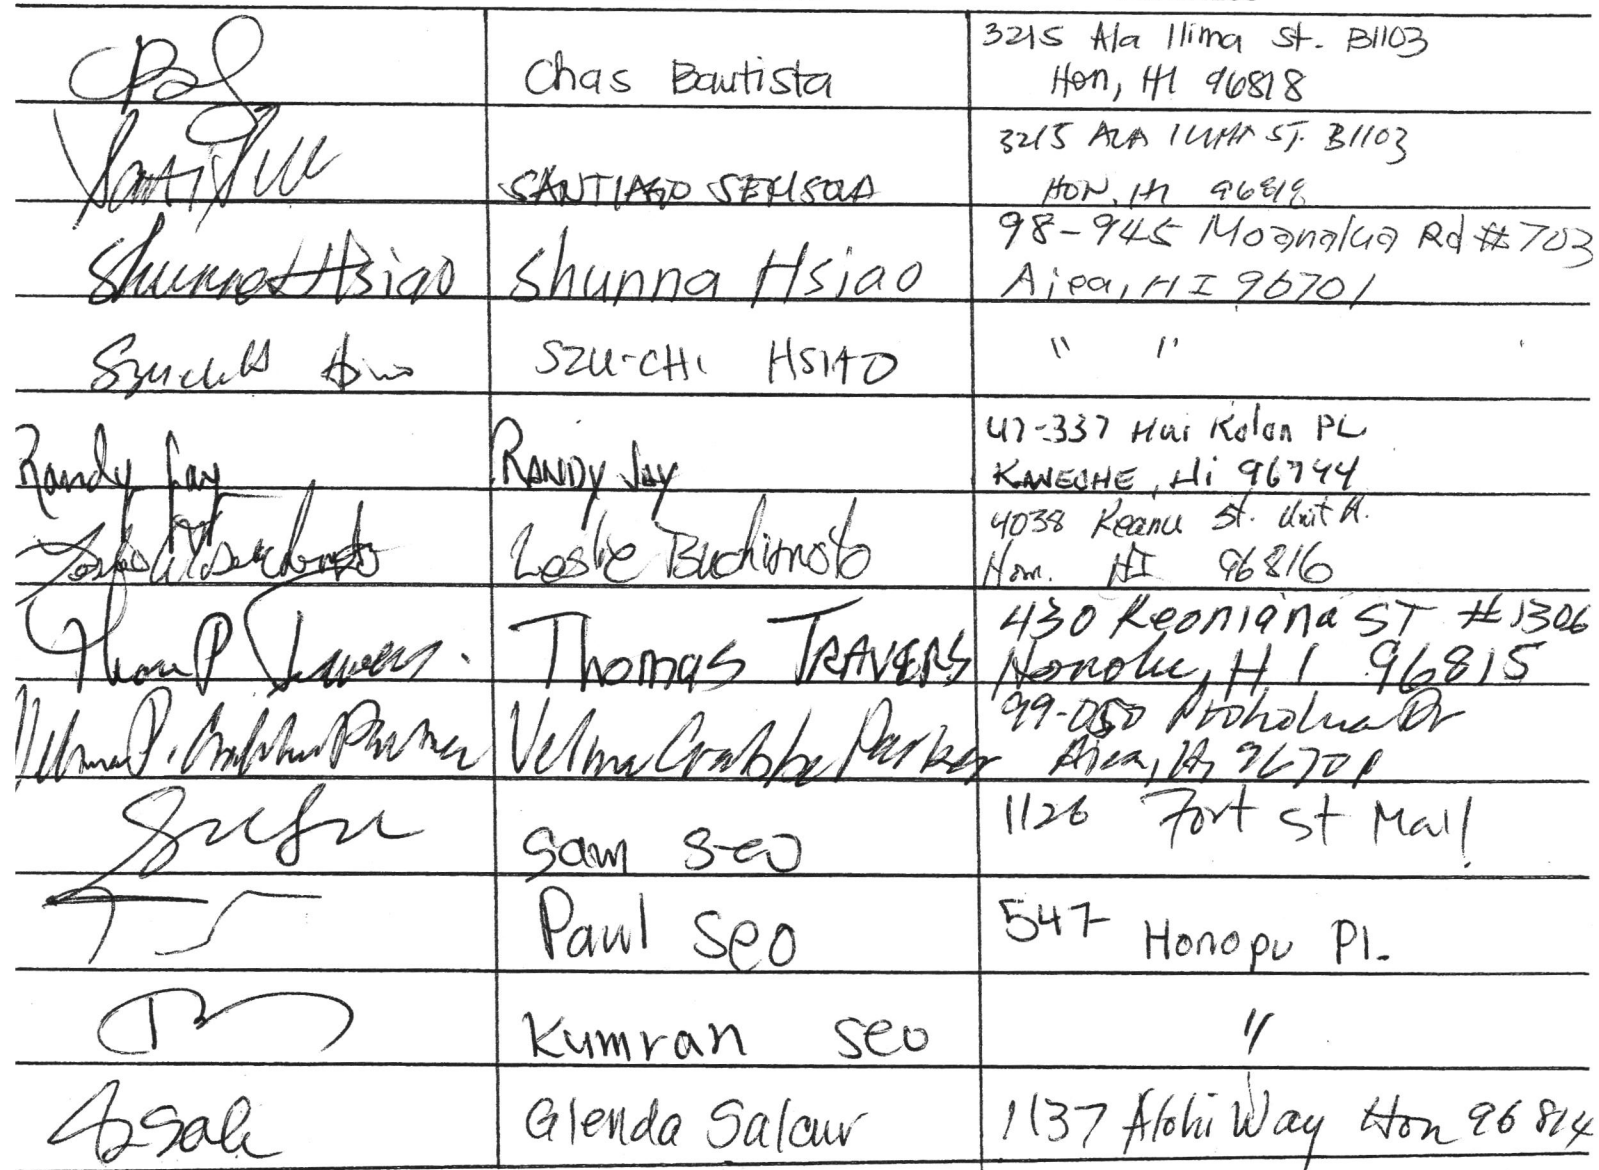 Chas Bautista
3215 Ala Ilima St. B1103
Hon, HI 96818
SANTIAGO
3215 ALA ILIMA ST. B1103
HON, HI 96818
Shunna Hsiao
Shunna Hsiao
98-945 Moanalua Rd #703
Aiea, HI 96701
SZU-CHI HSIAO
" "
Randy Jay
RANDY JAY
47-337 Hui Kolan PL
KANEOHE, Hi 96744
Leslie
4038 Keanu St. Unit A.
Hon. HI 96816
Thomas TRAVERS
430 Keoniana ST #1306
HI 96815
Velma Crabbe Parker
99-050 Dr
Aiea, Hi 96701
Sam Seo
1126 Fort St Mall
Paul Seo
547 Honopu Pl.
Kumran Seo
"
Glenda Salcur
1137 Alohi Way Hon 96814